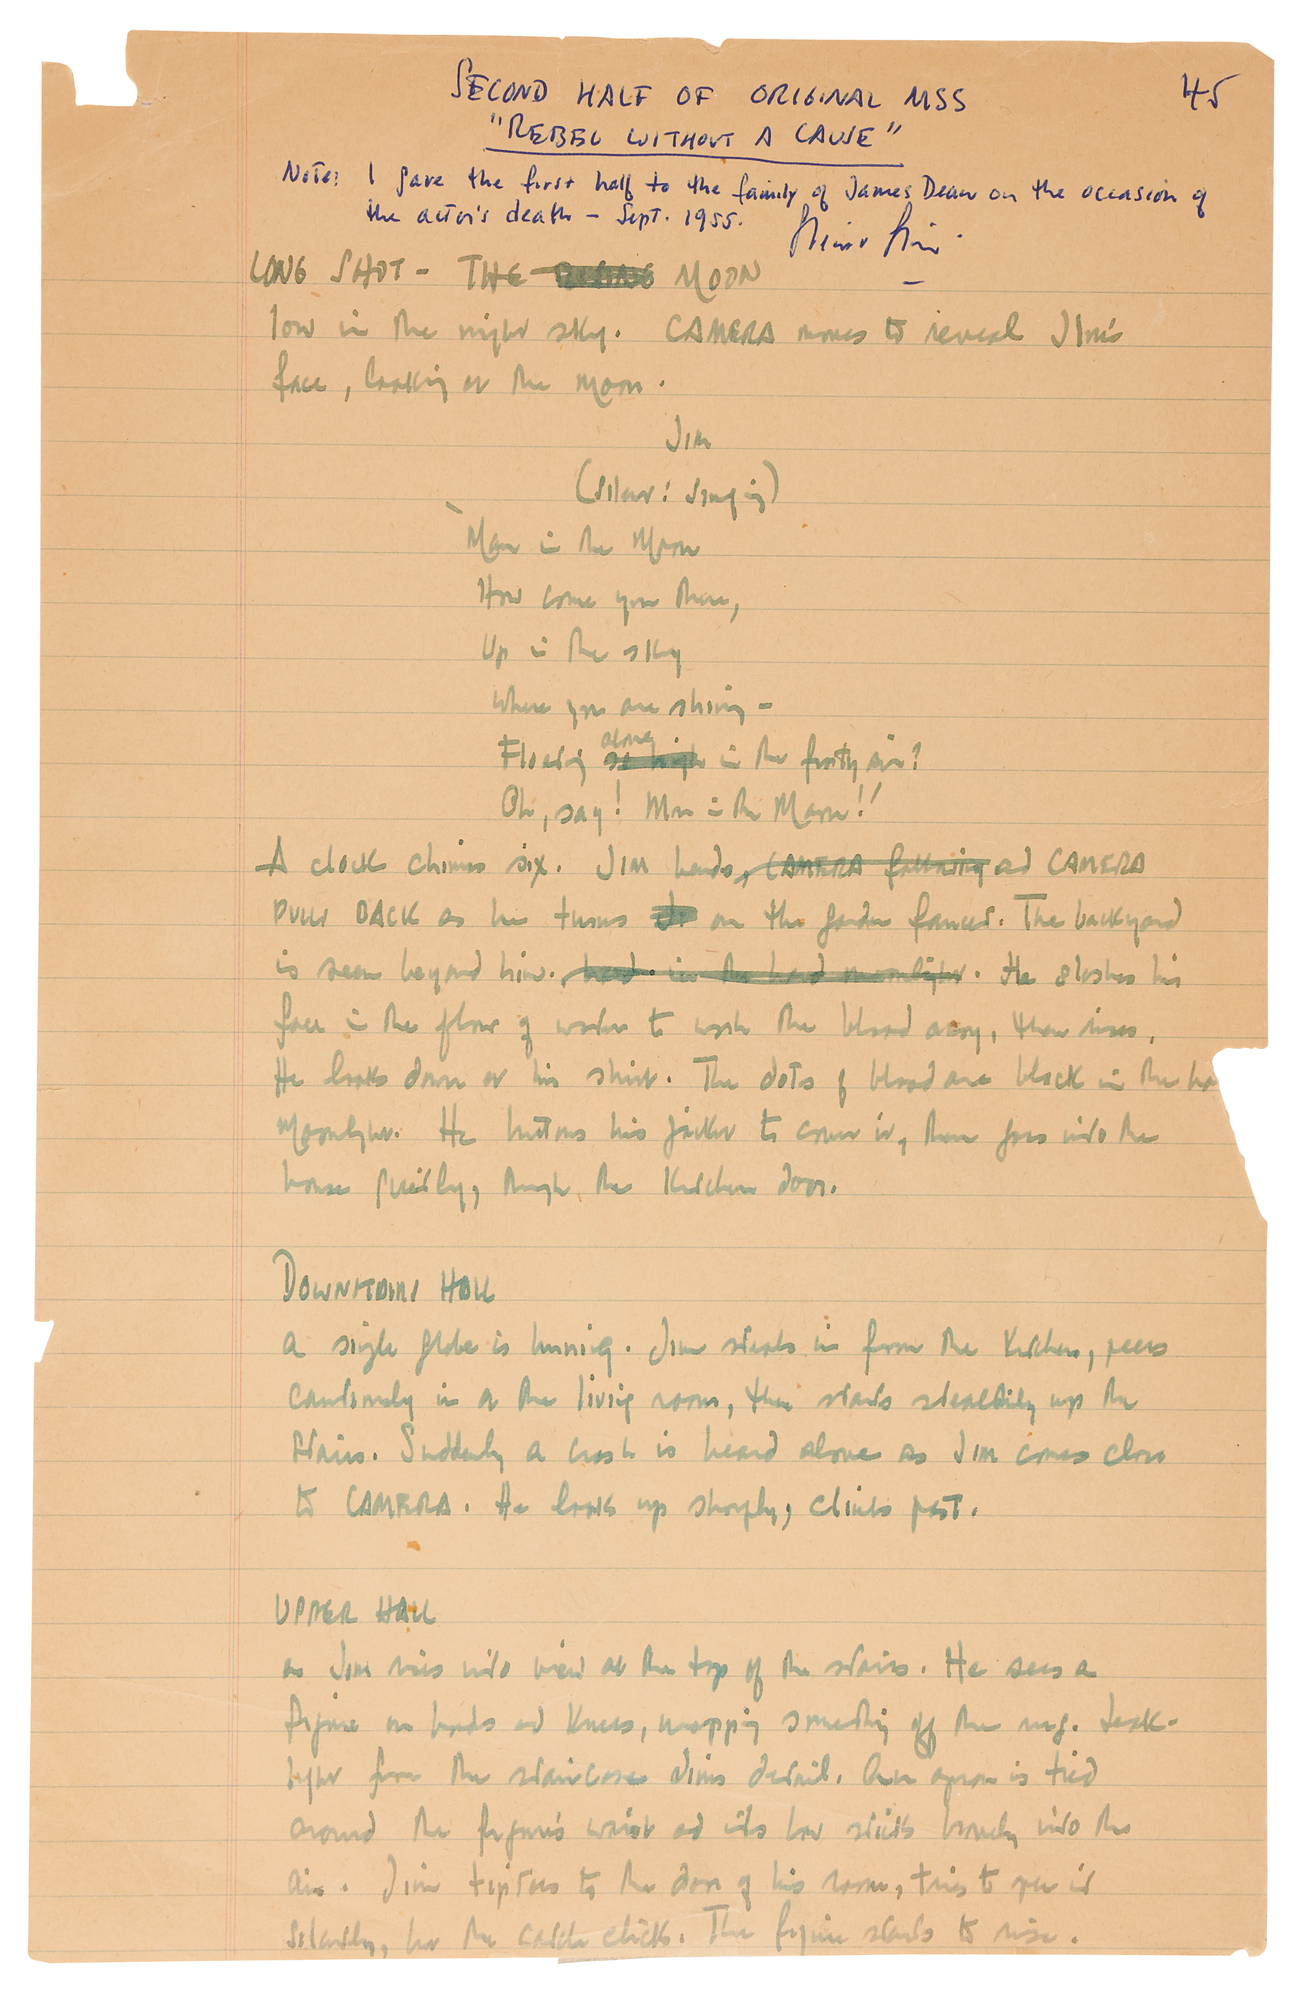 45
SECOND HALF OF ORIGINAL MSS
"REBEL WITHOUT A CAUSE"
Note: I gave the first half to the family of James Dean on the occasion of
the actor's death – Sept. 1955.
LONG SHOT – THE MOON
low in the night sky. CAMERA moves to reveal JIM's
face, looking at the moon.
JIM
(silent: singing)
Man in the Moon
How come you there,
Up in the sky
Where you are shining –
Floating along in the frosty air?
Oh, say! Man in the Moon!!
A clock chimes six. JIM bends, CAMERA following and CAMERA
PULLS BACK as he turns on the garden faucet. The backyard
is seen beyond him. hard in the hard moonlight. He sloshes his
face in the flow of water to wash the blood away, then rises.
He looks down at his shirt. The dots of blood are black in the
Moonlight. He buttons his jacket to cover it, then goes into the
house quietly, through the Kitchen door.
DOWNSTAIRS HALL
A single globe is burning. Jim steals in from the Kitchen, peers
cautiously in at the living room, then starts stealthily up the
stairs. Suddenly a crash is heard above as JIM comes close
to CAMERA. He looks up sharply, climbs past.
UPPER HALL
as JIM rises into view at the top of the stairs. He sees a
figure on hands and Knees, mopping something off the rug. back-
light from the staircase dims detail. An apron is tied
around the figure's waist and its bow sticks bravely into the
air. Jim tiptoes to the door of his room, tries to open it
silently, but the catch clicks. The figure starts to rise.